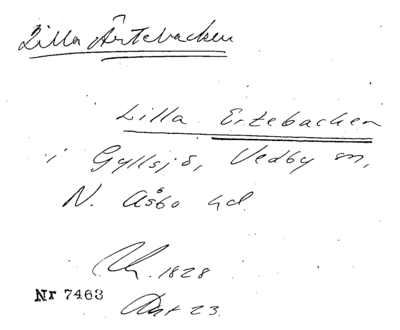 Lilla Ärtebacken
Lilla Ertebacken
i Gyllsjö, Vedby sn,
N. Åsbo hd.
1828
Nr 7463
23.